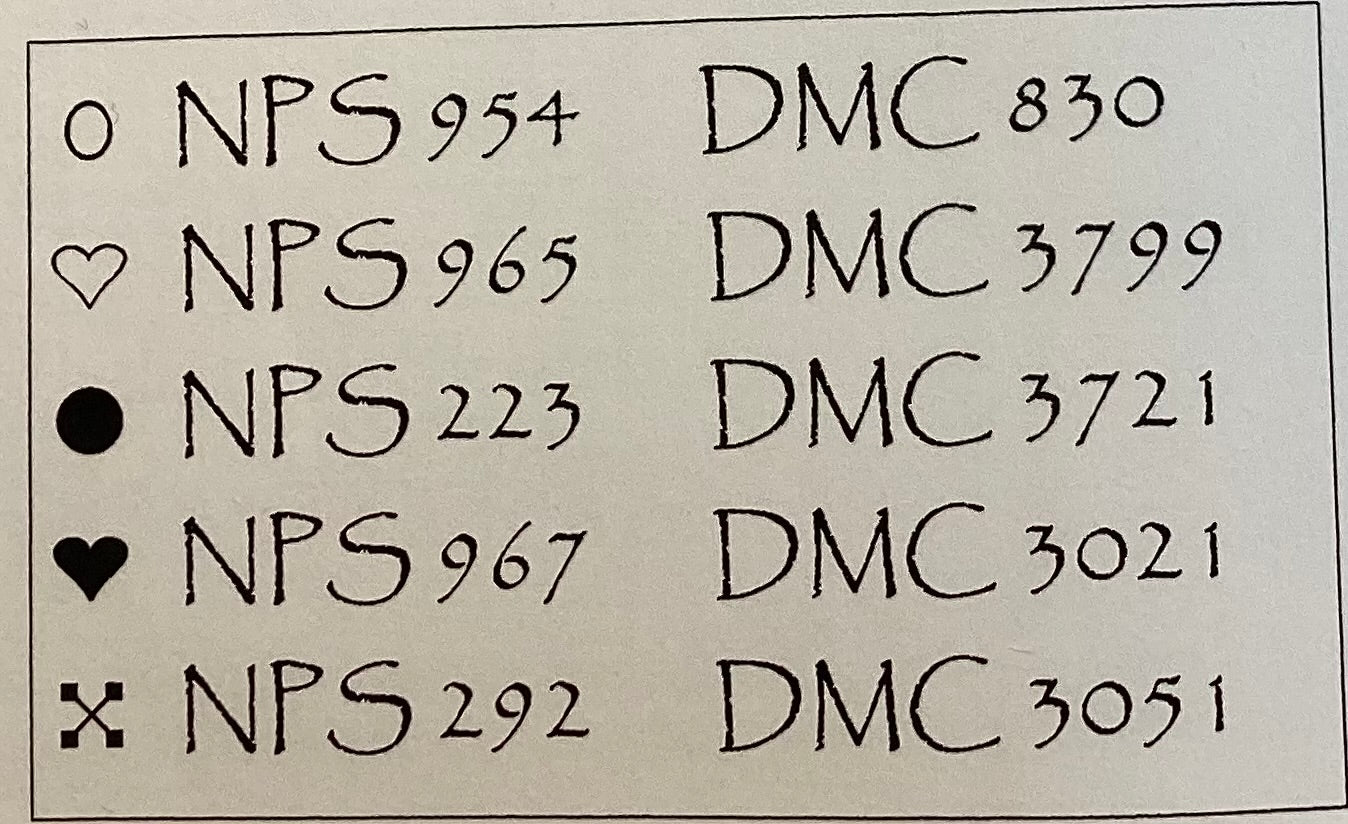 NPS 954 DMC 830
NPS 965 DMC 3799
NPS 223 DMC 3721
NPS 967 DMC 3021
NPS 292 DMC 3051